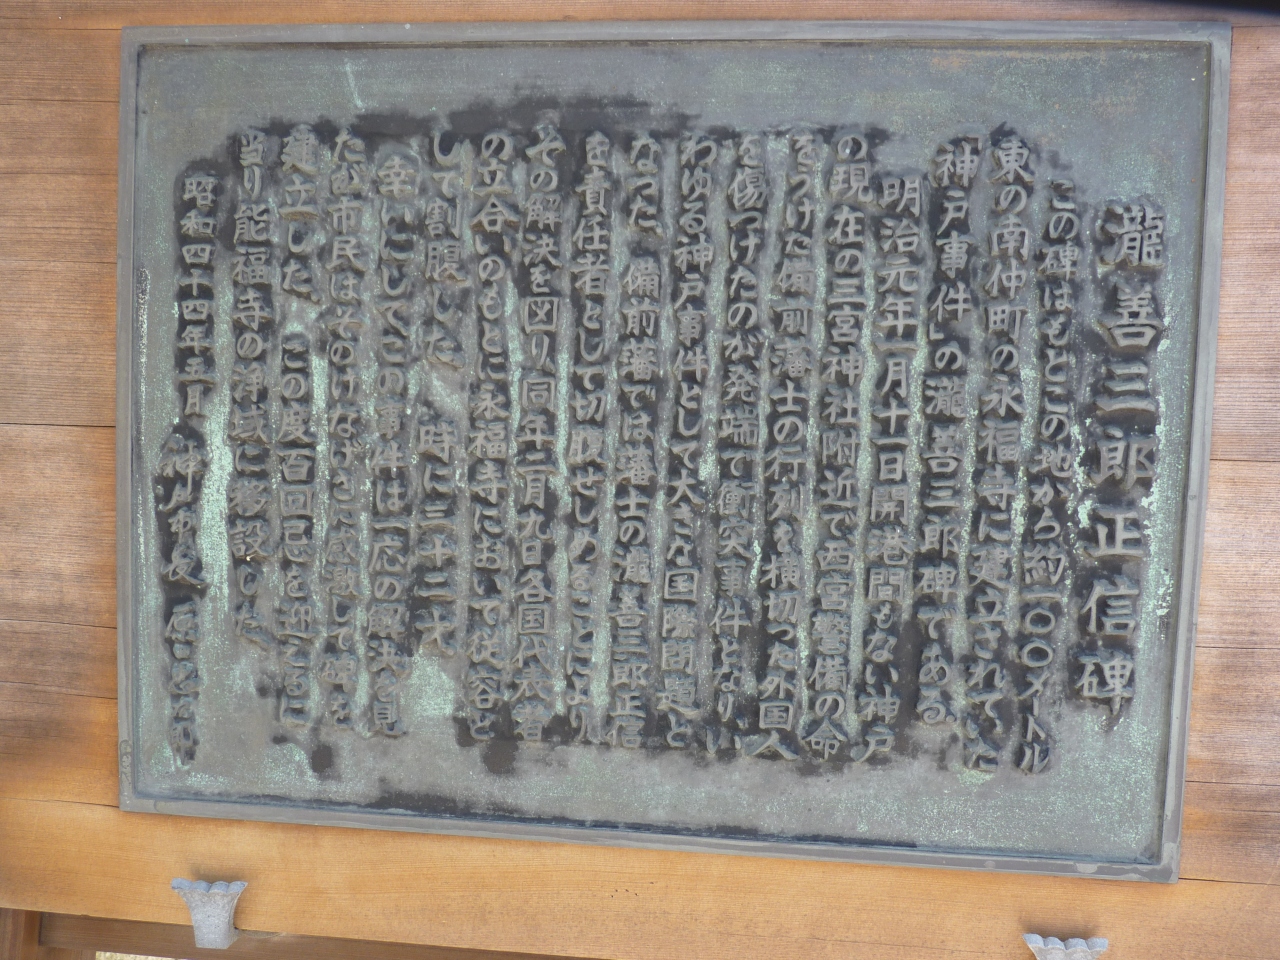 瀧善三郎正信碑
この碑はもとこの地から約一〇〇メートル
東の南仲町の永福寺に建立されていた
神戸事件」の瀧善三郎碑である。
明治元年一月十一日開港間もない神戸
の現在の三宮神社附近で西宮警備の命
をうけた備前藩士の行列を横切った外国人
を傷つけたのが発端で衝突事件となりい
わゆる神戸事件として大きな国際問題と
なった。備前藩では藩士の瀧善三郎正信
を責任者として切腹せしめることにより
その解決を図り、同年二月九日各国代表者
の立合いのもとに永福寺において従容と
して割腹した。時に三十二才
幸いにしてこの事件は一応の解決を見
たが市民はそのけなげさに感激して碑を
建立した。この度百回忌を迎えるに
当り能福寺の浄域に移設した。
昭和四十四年五月 神戸市長